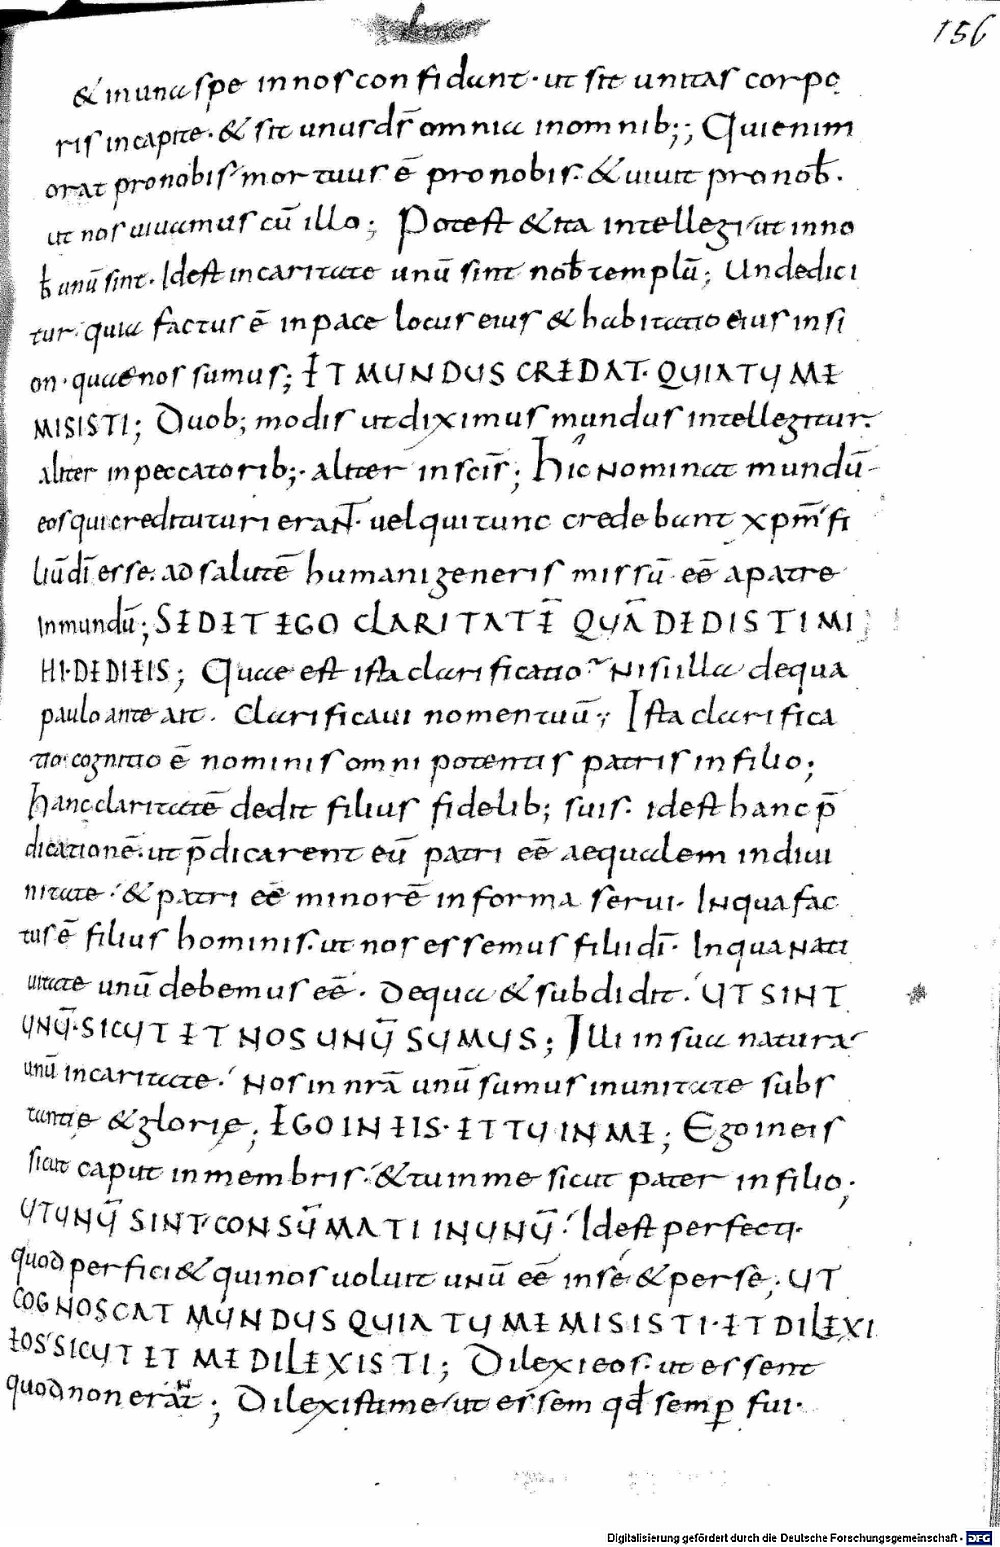 156
& in una spe in nos confidant · ut sit unitas corpo
ris in capite · & sit unus d̄s omnia in omnib;; Qui enim
orat pro nobis mortuus ē pro nobis · & uiuit pro nob̄ ·
ut nos uiuamus cū illo; Potest & ita intellegi ut in no
b̄ unū sint · Idest in caritate unū sint nob̄ templū; Unde dici
tur · quia factus ē in pace locus eius & habitatio eius in si
on · quae nos sumus; ET MUNDUS CREDAT · QUIA TU ME
MISISTI; Duob; modis ut diximus mundus intellegitur ·
aliter in peccatorib; · aliter in sc̄is; Hic nominat mundū
eos qui credituri erant · uel qui tunc credebant xp̄m fi
liū dī esse · ad salutē humani generis missū eē a patre
in mundū; SED ET EGO CLARITATĒ QUĀ DEDISTI MI
HI · DEDI EIS; Quae est ista clarificatio nisi illa de qua
paulo ante ait · clarificaui nomen tuū; Ista clarifica
tio · cognitio ē nominis omnipotentis patris in filio;
Hanc claritatē dedit filius fidelib; suis · idest hanc p̄
dicationē · ut p̄dicarent eū patri eē aequalem in diui
nitate · & patri eē minorē in forma serui · In qua fac
tus ē filius hominis · ut nos essemus filii dī · In qua nati
uitate unū debemus eē · De qua & subdidit · UT SINT
UNŪ · SICUT ET NOS UNŪ SUMUS; Illi in sua natura
unū in caritate · Nos in nrā unū sumus in unitate subs
tantię & glorię; EGO IN EIS · ET TU IN ME; Ego in eis
sicut caput in membris · & tu in me sicut pater in filio;
UT UNŪ SINT CONSŪMATI IN UNŪ · Idest perfecti ·
quod perfici & qui nos uoluit unū eē in se & per se; UT
COGNOSCAT MUNDUS QUIA TU ME MISISTI · ET DILEXI
EOS SICUT ET ME DILEXISTI; Dilexi eos · ut essent
quod non erant; Dilexisti me ut essem qd̄ semp fui ·
Digitalisierung gefördert durch die Deutsche Forschungsgemeinschaft - DFG